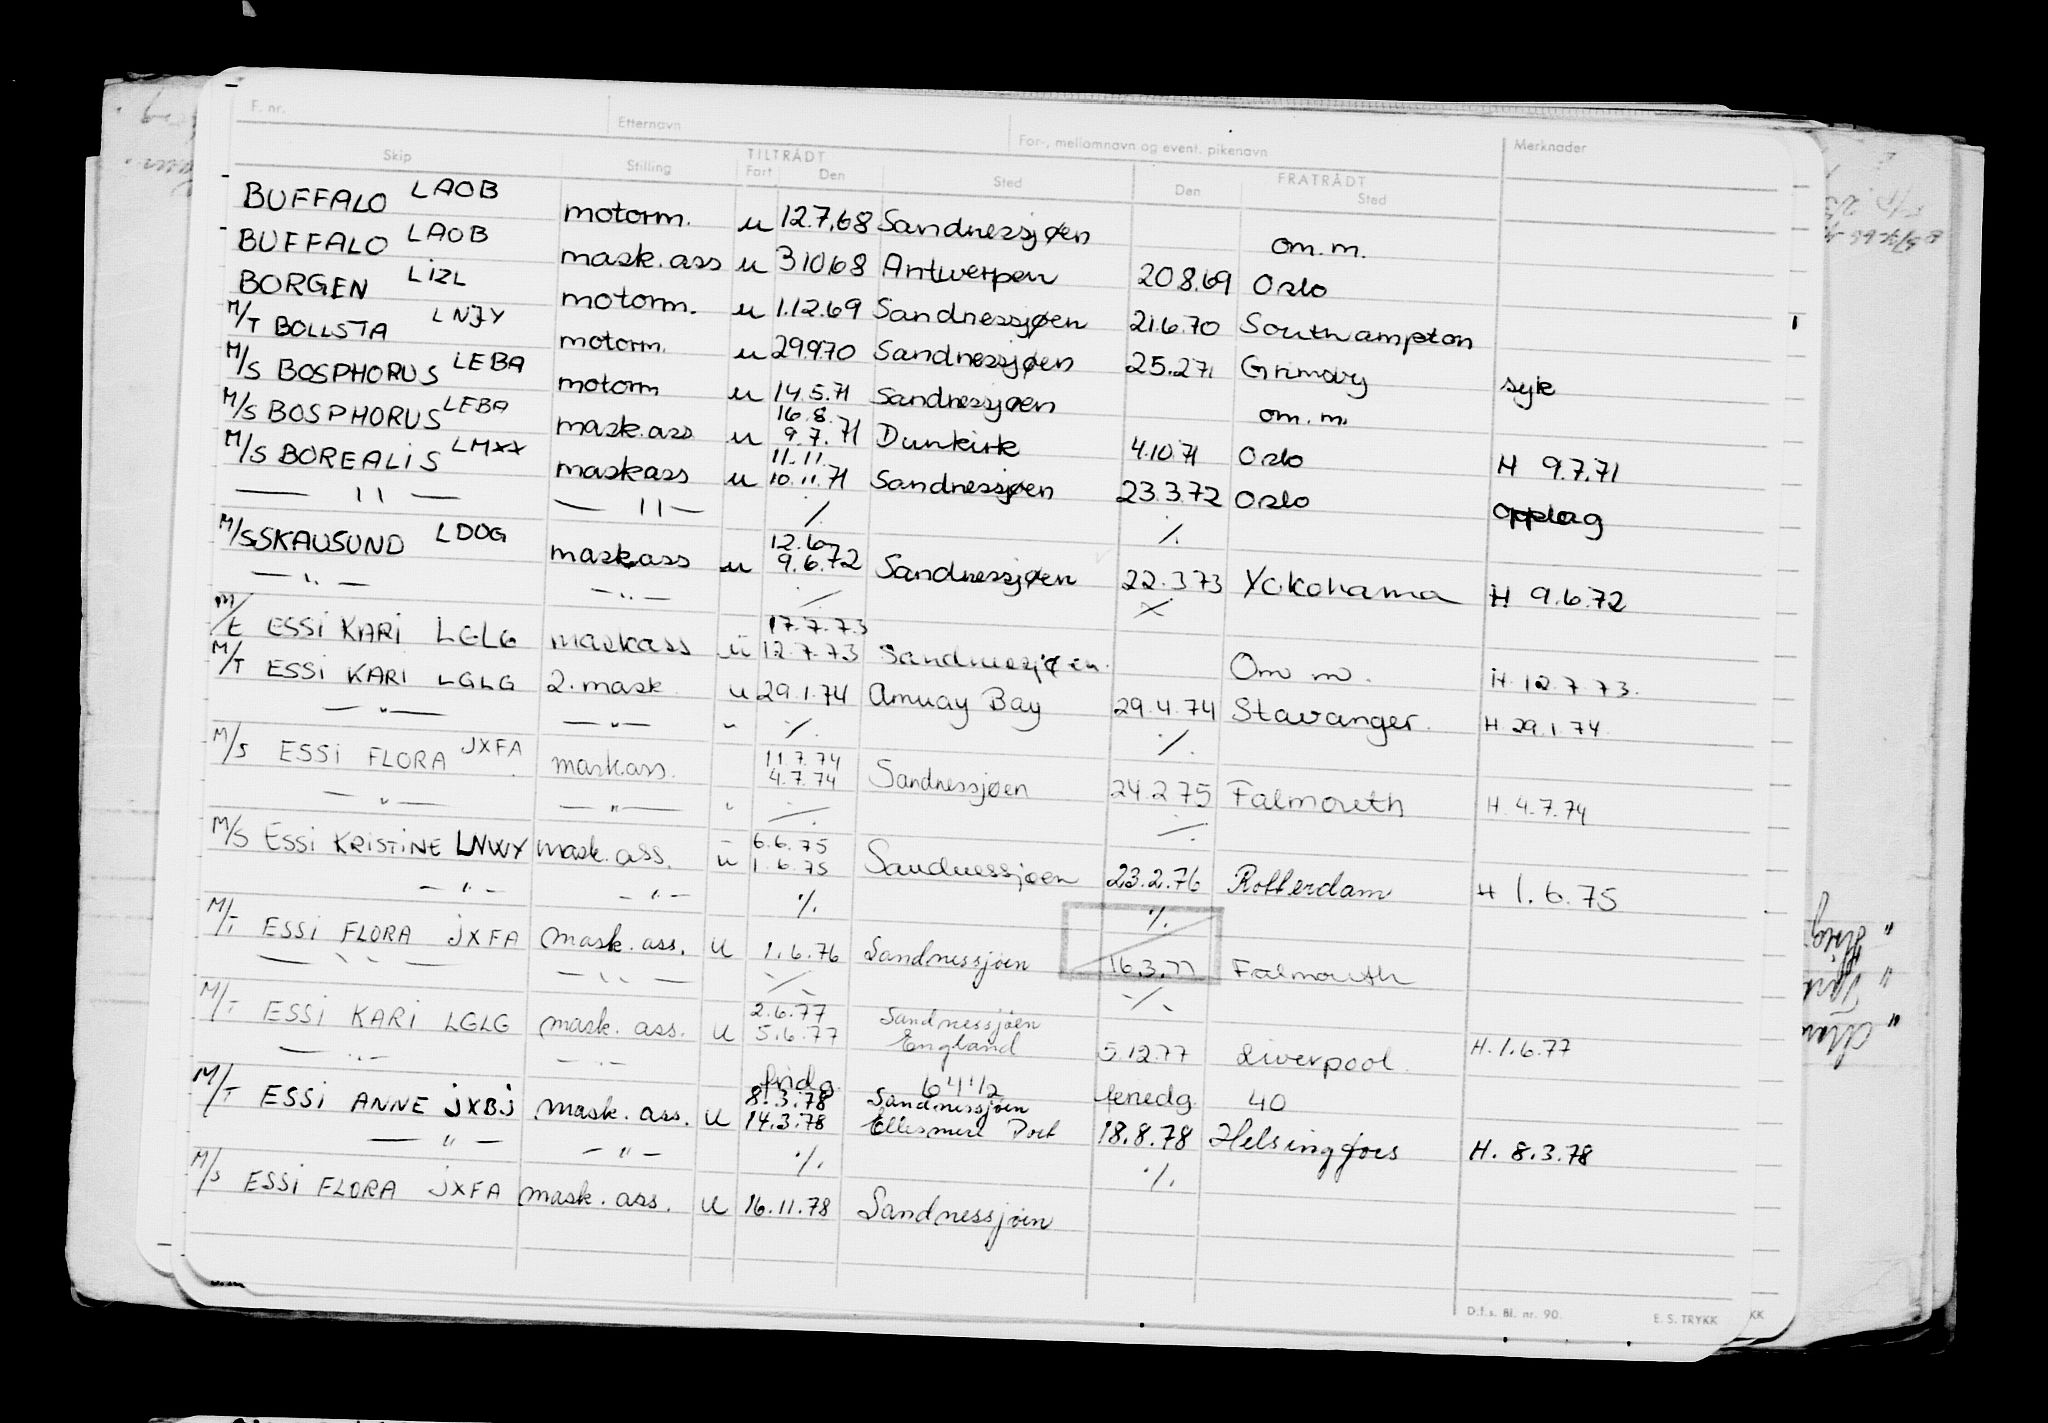 F. nr. Etternavn For-, mellomnavn og event. pikenavn Merknader
Skip Stilling TILTRÅDT FRATRÅDT
Fart Den Sted Den Sted
BUFFALO LAOB motorm. u 12.7.68 Sandnessjøen om.m.
BUFFALO LAOB mask.ass u 3.10.68 Antwerpen 20.8.69 Oslo
BORGEN LIZL motorm. u 1.12.69 Sandnessjøen 21.6.70 Southampton
M/T BOLLSTA motorm. u 29.9.70 Sandnessjøen 25.2.71 Grimsby syk
M/S BOSPHORUS LEBA motorm u 14.5.71 Sandnessjøen om.m.
16.8.
M/S BOSPHORUS LEBA mask.ass u 9.7.71 Dunkirk 4.10.71 Oslo H 9.7.71
11.11.
M/S BOREALIS LMXX maskass u 10.11.71 Sandnessjøen 23.3.72 Oslo opplag
— 11 — — 11 — ./. ./.
12.6.
M/S SKAUSUND LDOG maskass u 9.6.72 Sandnessjøen 22.3.73 Yokohama H 9.6.72
— " — — " — ./. ./.
17.7.73
M/T ESSI KARI LGLG maskass u 12.7.73 Sandnessjøen. Om m. H. 12.7.73.
M/T ESSI KARI LGLG 2. mask. u 29.1.74 Amuay Bay 29.4.74 Stavanger. H. 29.1.74.
— " — — " — " ./. ./.
11.7.74
M/S ESSI FLORA JXFA maskass. 4.7.74 Sandnessjøen 24.2.75 Falmouth H. 4.7.74
— " — — " — " ./. ./.
6.6.75
M/S ESSI KRISTINE LNWY mask.ass. u 1.6.75 Sandnessjøen 23.2.76 Rotterdam H 1.6.75
— " — — " — ./. ./.
M/T ESSI FLORA JXFA mask. ass. u 1.6.76 Sandnessjøen 16.3.77 Falmouth
— " — — " — ./. ./.
2.6.77 Sandnessjøen
M/T ESSI KARI LGLG mask. ass. u 5.6.77 England 5.12.77 Liverpool. H. 1.6.77
— " — — " —
8.3.78 Sandnessjøen 40
M/T ESSI ANNE JXBJ mask. ass. u 14.3.78 Ellesmere Port 18.8.78 Helsingfors H. 8.3.78
— " — — " — ./. ./.
M/S ESSI FLORA JXFA mask. ass. u 16.11.78 Sandnessjøen
D.f.s. Bl. nr. 90. E. S. TRYKK
KK